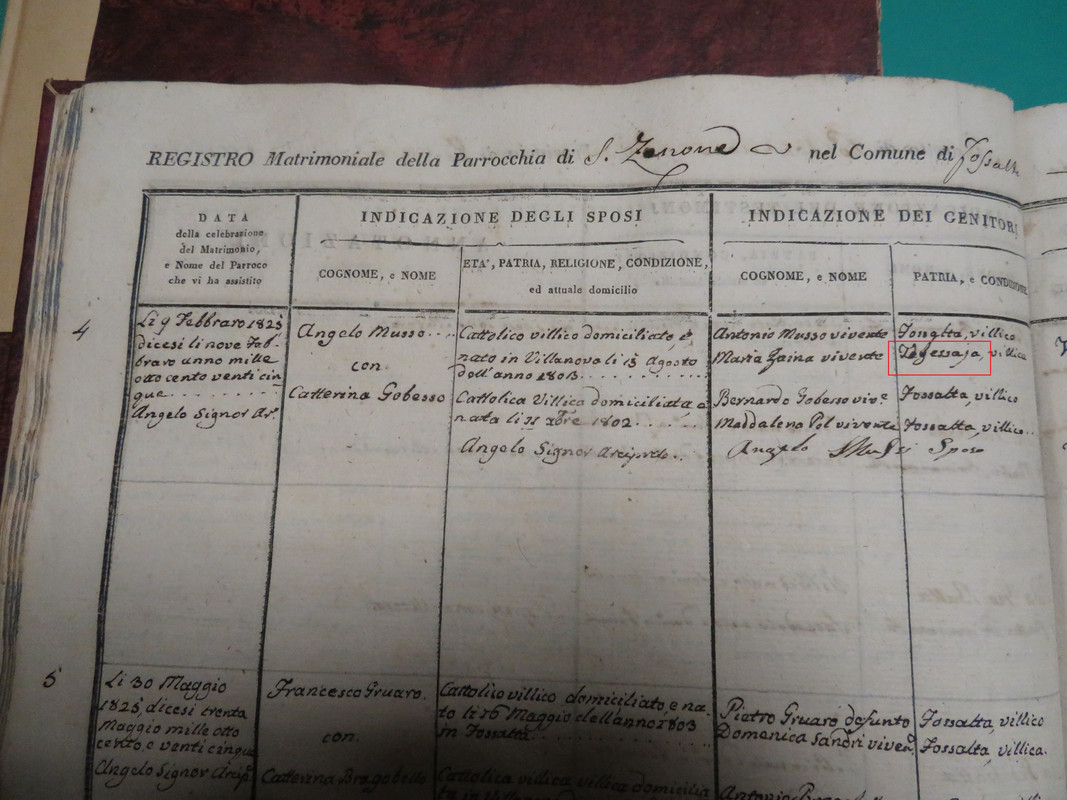 REGISTRO Matrimoniale della Parrocchia di S. Zenone nel Comune di Fossalt
DATA
della celebrazione
del Matrimonio,
e Nome del Parroco
che vi ha assistito
INDICAZIONE DEGLI SPOSI
COGNOME, e NOME
ETA', PATRIA, RELIGIONE, CONDIZIONE,
ed attuale domicilio
INDICAZIONE DEI GENITORI
COGNOME, e NOME
PATRIA, e CONDIZIONE
4
Li 9 Febbraro 1825
dicesi li nove Feb-
braro anno mille
otto cento venti cin
que
Angelo Signor Ar.
Angelo Musso
con
Catterina Gobesso
Cattolico villico domiciliato è
nato in Villanova li 15 Agosto
dell'anno 1803
Cattolica Villica domiciliata, e
nata li 11 xbre 1802
Angelo Signor Arcip
Antonio Musso vivente
Maria Zaina vivente
Bernardo Gobesso viv.e
Maddalena Pol vivente
Angelo Sposo
villico
villica
Fossalta, villico
Fossalta, villica
5
Li 30 Maggio
1825, dicesi trenta
Maggio mille otto
cento, e venti cinque
Angelo Signor Arcip
Francesco Gruaro.
con
Catterina
Cattolico villico domiciliato, e na-
to li 16 Maggio dell'anno 1803
in Fossalta
Cattolica villica domicilia
Pietro Gruaro defunto
Domenica Sandri viven
Antonio
Fossalta, villico
Fossalta, villica.